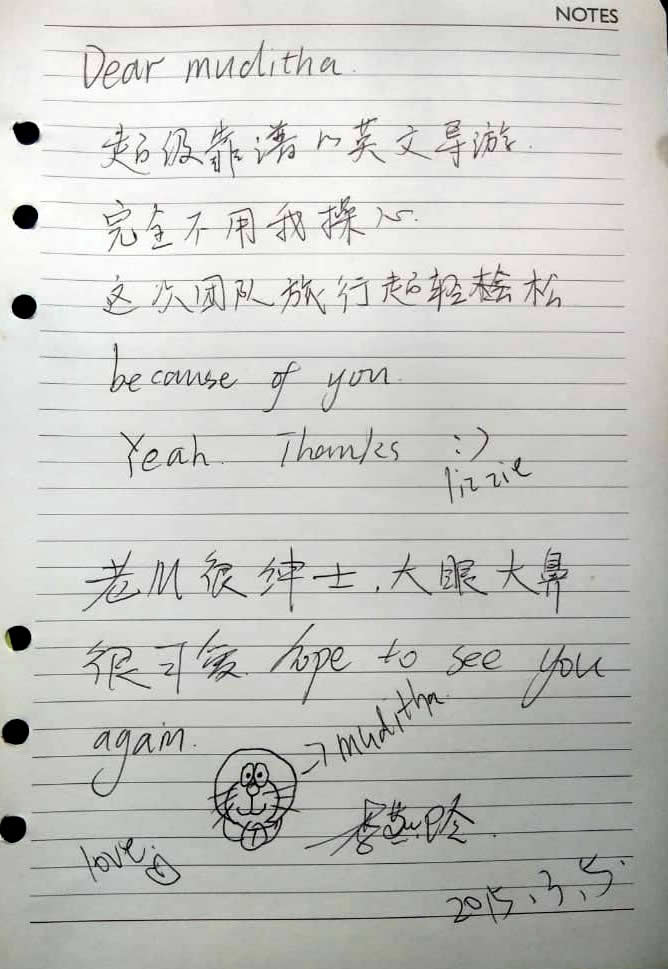 NOTES
Dear muditha.
超级靠谱的英文导游.
完全不用我操心.
这次团队旅行超轻松
because of you.
Yeah. Thanks :)
lizzie
老M很绅士,大眼大鼻
很可爱. hope to see you
again.
→ muditha.
love.
2015.3.5.